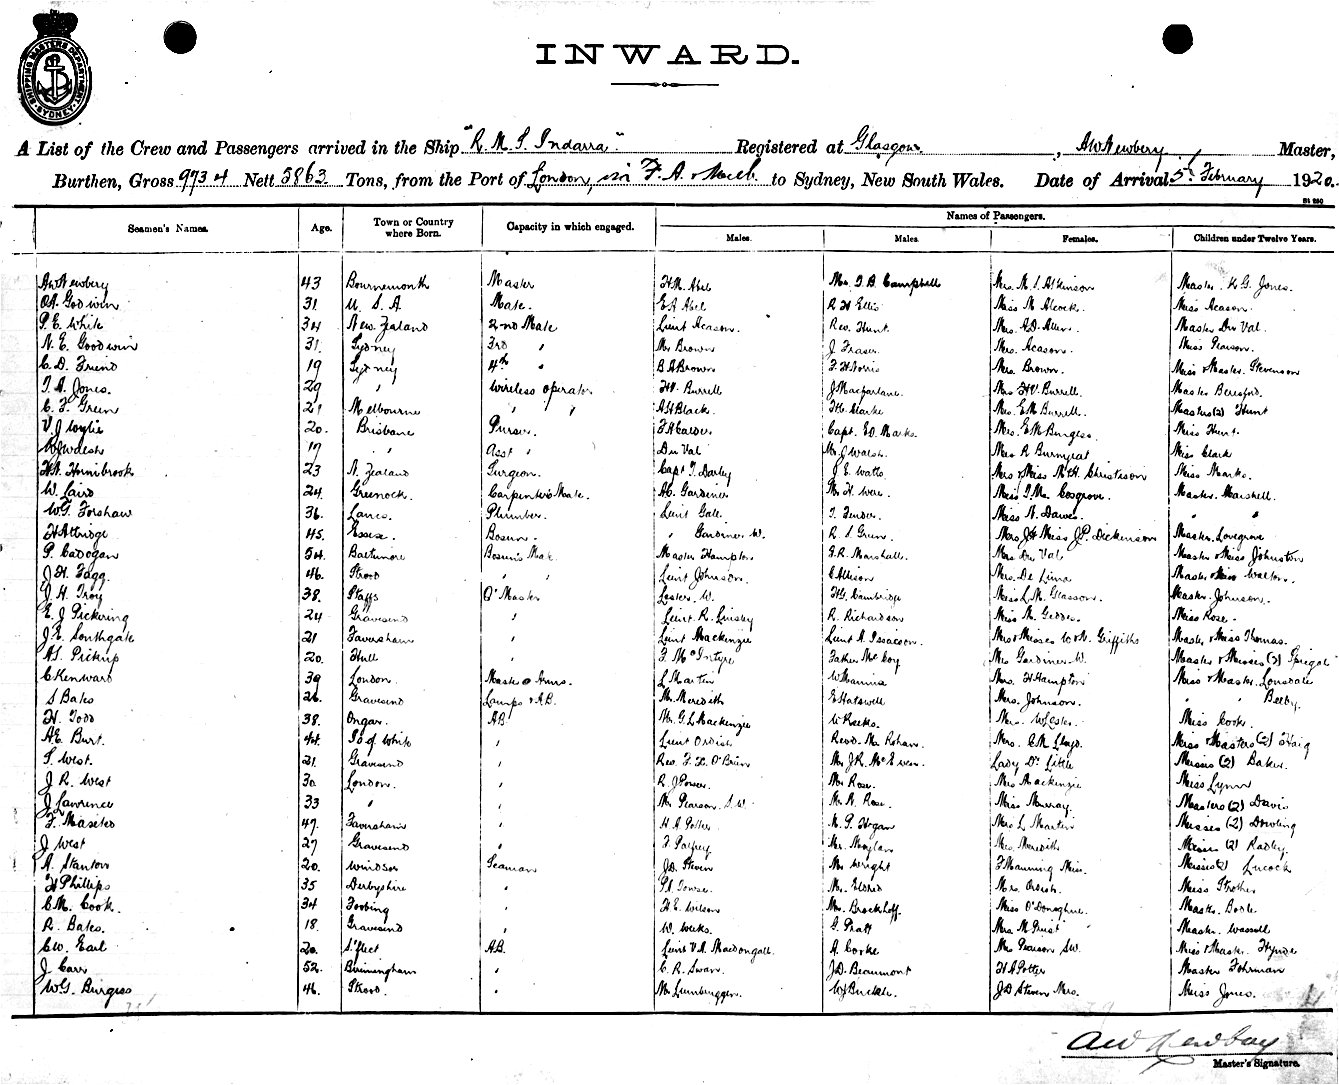 SHIPPING MASTERS DEPARTMENT SYDNEY
INWARD.
A List of the Crew and Passengers arrived in the Ship "R. M. S. Indarra" Registered at Glasgow, AW Newbery, Master,
Burthen, Gross 9734 Nett 5863 Tons, from the Port of London, via F. A. & Melb. to Sydney, New South Wales. Date of Arrival 5th February 1920.
Seamen's Names. Age. Town or Country where Born. Capacity in which engaged. Names of Passengers.
Males. Males. Females. Children under Twelve Years.
AW Newbery 43 Bournemouth Master H.M. Abel Mr. D. B. Campbell Mrs. M. S. Atkinson Master K G. Jones.
Godwin 31 U. S. A Mate. E A Abel R H Ellis Miss M. Alcock. Miss Acason.
P. E. White 34 New Zealand 2nd Mate Lieut Acason. Rev. Hunt. Mrs. A.D. Allen. Master Du Val.
N. E. Goodwin 31. Sydney 3rd " Mr Brown J. Fraser. Mrs. Acason. Miss Pearson.
C. D. Friend 19 Sydney 4th " B A Brown F. H Norris Mrs. Brown. Miss & Master Stevenson
T. A. Jones. 29 " Wireless operator H.V. Burrell J Macfarlane. Mrs H V. Burrell. Master Beresford.
C. F. Green 21 Melbourne " " A H Black. H. Clarke Mrs. E M Burrell. Masters (2) Hunt
V. J Wylie 20. Brisbane Purser. F A Calder Capt. E D. Marks. Mrs. E M Burgess. Miss Hunt.
17 " " Asst " Du Val Mr. J Walsh. Miss R Burnyeat Miss Clark
H.N. Hornibrook 23 N. Zealand Surgeon. Capt T. Darley J E Watts Mrs & Miss M H. Christison Miss Marks.
W. Laird 24. Greenock. Carpenter's Mate. A C. Gardiner Mr H. Were. Miss I Mc Cosgrove. Master Marshall.
W.G. Forshaw 36. Lancs. Plumber. Lieut Gale T. Fender. Miss N. Dawes. " "
H Attridge 45. Essex. Bosun. " Gardiner W. R. S Green Mrs J H Miss J P. Dickenson Master Lovegrove
P. Cadogan 54. Baltimore Bosun's Mate. Master Hampton G.R. Marshall. Mrs Du Val Master & Miss Johnston
J. H. Fagg. 46. Strood " " Lieut Johnson. E Allison Mrs. De Lima Master & Miss Walton.
J. H. Troy 38. Staffs Q' Master Lester. W. H G. Cambridge Miss L. M. Glasson. Master Johnson.
E. J Pickering 24 Gravesend " Lieut. R. Linsley R. Richardson Miss M. Geddes. Miss Rose.
J. E. Southgate 21 Faversham " Lieut Mackenzie Lieut A. Issacson. Mrs & Misses W. & N. Griffiths Master & Miss Thomas.
A S. Pickup 20. Hull " F. McIntyre Father McCoy Mrs Gardiner W. Master & Misses (2) Spiegel
C Kenward 39 London. Master @ Arms. L Martin W Mannix Mrs. H Hampton Miss & Master Lonsdale
S Bates 26. Gravesend Lamps & A.B. Mr. Meredith E Hatswell Mrs. Johnson. " " Beeby.
H. Todd 38. Ongar. A.B. Mr. G L Mackenzie W Reeks. Mrs. W Lester. Miss Cook.
A.E. Burt. 44. Is of White " Lieut Ordish Revd. Mr Rohan. Mrs. E M Lloyd. Miss & Masters (2) Haig
S. West. 21. Gravesend " Rev. F. X. O'Brien Mr. J R. McEwen. Lady De Little Misses (2) Baker.
J. R. West 30. London. " R. J Power. Mr Rose. Mrs Mackenzie Miss Lynn
J Lawrence 33 " " Mr Pearson S. W. Mr. N. Rose. Miss Murray. Masters (2) Davis
F. Masters 47. Faversham " H A Potter M. P. Hogan Mrs L Martin Misses (2) Dowling
J West 27 Gravesend " F. Palfrey Mr. Moylan Mrs. Meredith Misses (2) Radley.
A. Stanton 20. Windsor Seaman J.D. Steven Mr Wright F Manning Miss. Misses (2) Lucock
H Phillips 35 Derbyshire " P A Towse. Mr. Eldred Mrs. Ordish. Miss Strother
C.M. Cook. 34 Tooting " H. E. Wilson Mr. Brockhoff. Miss O'Donoghue. Master Bodle
R. Bates. 18. Gravesend " W. Weeks. G Pratt Mrs M Priest Master Wassell
C.W. Earl 20. S'fleet A.B. Lieut V. A. Macdongall. A. Corke Mrs Pearson S.W. Miss & Master Hynde
J. Carr 52. Birmingham " C. R. Swan. J D. Beaumont H A Potter Master Fohrman
W.G. Burgess 46. Strood. " Mr. Leimbuggen. W J Buckle. J D Steven Mrs. Miss Jones.
AW Newbery
Master's Signature.